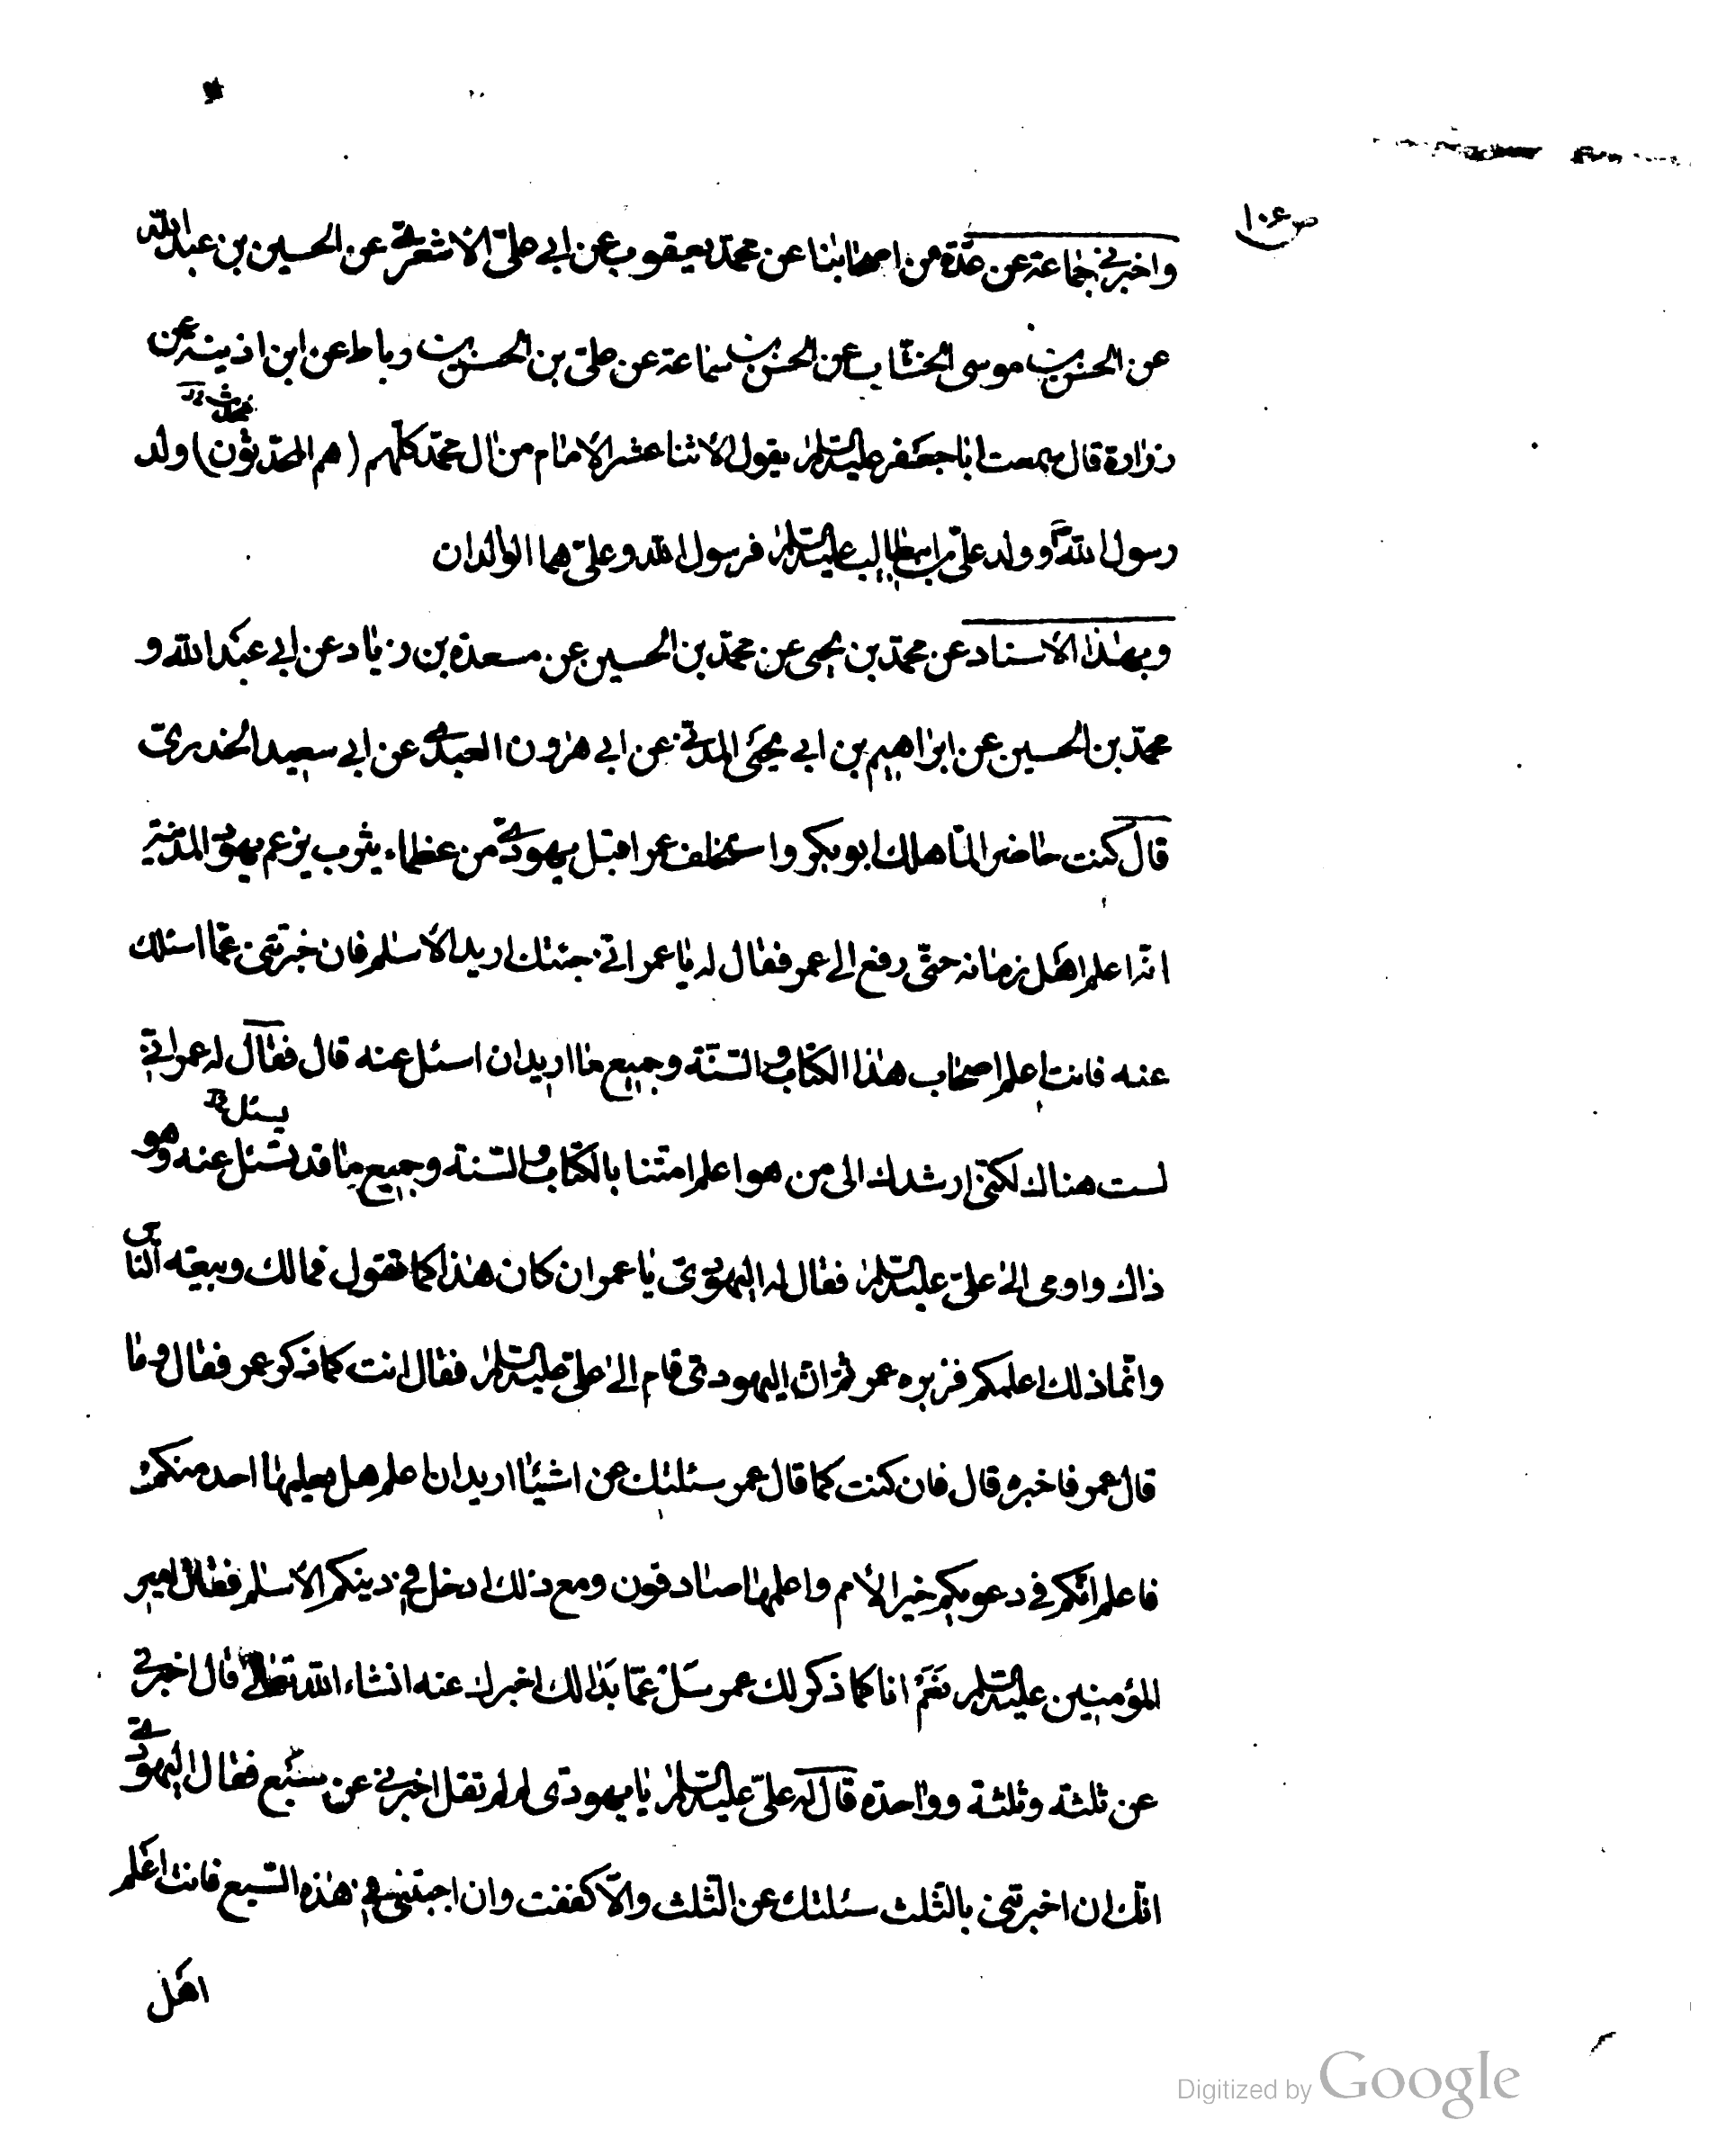 ص ١٠٤
واخبرني جماعة عن عدة من اصحابنا عن محمد بن يعقوب عن ابي علي الاشعري عن الحسين بن عبد الله
عن الحسن بن موسى الخشاب عن الحسن بن سماعة عن علي بن الحسن بن رباط عن ابن اذينة عن
محدث خ
زرارة قال سمعت ابا جعفر عليه السلام يقول الاثنا عشر الامام من ال محمد كلهم (هم المحدثون) ولد
رسول الله ص وولد علي بن ابيطالب عليه السلام فرسول الله وعلي هما الوالدان
وبهذا الاسناد عن محمد بن يحيى عن محمد بن الحسين عن مسعدة بن زياد عن ابي عبد الله و
محمد بن الحسين عن ابراهيم بن ابي يحيى المدني عن ابي هرون العبدي عن ابي سعيد الخدري
قال كنت حاضرا لما هلك ابو بكر واستخلف عمر اقبل يهودي من عظماء يثرب يزعم يهود المدينة
انه اعلم اهل زمانه حتى رفع الى عمر فقال له يا عمر اني جئتك اريد الاسلم فان خبرتني عما اسئلك
عنه فانت اعلم اصحاب هذا الكتاب والسنة وجميع ما اريد ان اسئل عنه قال فقال له عمر اني
يسئل خ
لست هناك لكني ارشدك الى من هو اعلم امتنا بالكتاب والسنة وجميع ما قد تسئل عنه وهو
ذاك واومى الى علي عليه السلام فقال له اليهودي يا عمر ان كان هذا كما تقول فمالك وبيعة الناس
وانما ذلك اعلمكم فزبره عمر ثم ان اليهودي قام الى علي عليه السلام فقال انت كما ذكر عمر فقال وما
قال عمر فاخبره قال فان كنت كما قال عمر سئلتك عن اشياء اريد ان اعلم هل يعلمها احد منكم
فاعلم انكم في دعويكم خير الامم واعلمها صادقون ومع ذلك ادخل في دينكم الاسلم فقال امير
المؤمنين عليه السلم نعم انا كما ذكر لك عمر سل عما بدا لك اخبرك عنه انشاء الله تعالى قال اخبرني
عن ثلثة وثلثة وواحدة قال له علي عليه السلام يا يهودي لم لم تقل اخبرني عن سبع فقال اليهودي
انك ان اخبرتني بالثلث سئلتك عن الثلث والا كففت وان اجبتني في هذه السبع فانت اعلم
اهل
Digitized by Google